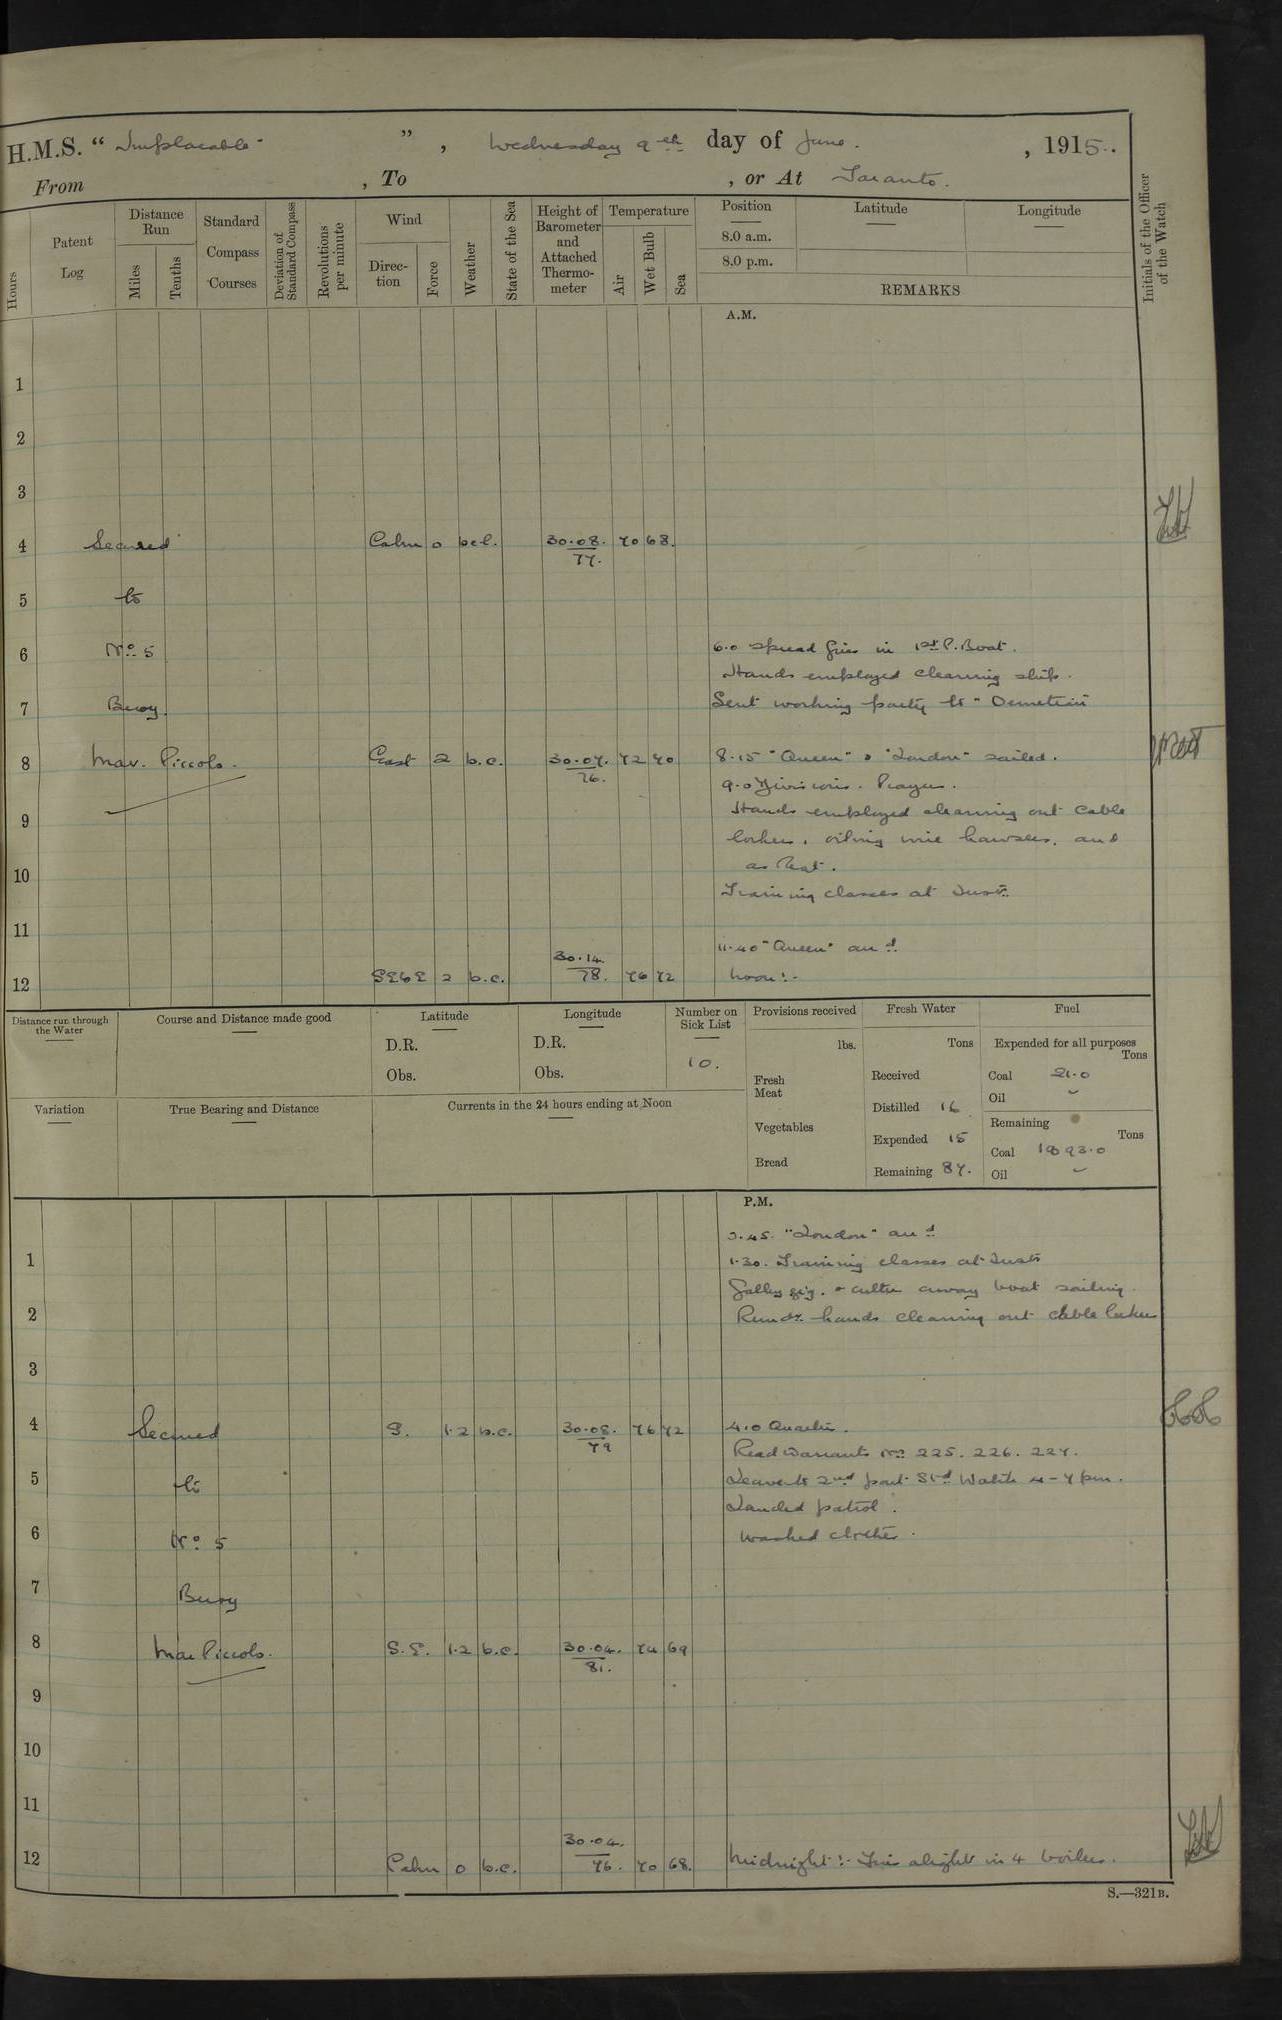 H.M.S. "Implacable", Wednesday 9th day of June, 1915.
From , To , or At Taranto.
Hours
Patent Log
Distance Run
Miles
Tenths
Standard Compass Courses
Deviation of Standard Compass
Revolutions per minute
Wind
Direction
Force
Weather
State of the Sea
Height of Barometer and Attached Thermometer
Temperature
Air
Wet Bulb
Sea
Position
Latitude
Longitude
8.0 a.m.
8.0 p.m.
REMARKS
Initials of the Officer of the Watch
A.M.
1
2
3
4 Secured Calm 0 b.c.l. 30.08. 70 68.
77.
5 to
6 No. 5 6.0 Spread fires in 1st P. Boat.
Hands employed cleaning ship.
7 Buoy. Sent working party to "Demetian"
8 Mar. Piccolo. East 2 b.c. 30.07. 72 70 8.15 "Queen" & "London" sailed.
76.
9.0 Divisions. Prayers.
9 Hands employed cleaning out cable
lockers, oiling wire hawsers, and
10 as reqt.
Training classes at Inst:
11 11.40 "Queen" arrd.
12 SEbE 2 b.c. 30.14. 76 72 Noon:-
78.
Distance run through the Water
Course and Distance made good
Latitude
D.R.
Obs.
Longitude
D.R.
Obs.
Number on Sick List
10.
Provisions received
lbs.
Fresh Meat
Vegetables
Bread
Fresh Water
Tons
Received
Distilled 16
Expended 15
Remaining 87.
Fuel
Expended for all purposes
Tons
Coal 21.0
Oil
Remaining
Tons
Coal 1893.0
Oil
Variation
True Bearing and Distance
Currents in the 24 hours ending at Noon
P.M.
"London" arrd
1 1.30. Training classes at Instn
Galley gig. & cutter away boat sailing.
2 Remdr. hands cleaning out cable lockers
3
4 Secured S. 1.2 b.c. 30.08. 76 72 4.0 Quarters.
79
Read Warrants Nos 225. 226. 227.
5 to Leave to 2nd part Stbd Watch 4-7 pm.
Landed patrol.
6 No. 5 Washed clothes.
7 Buoy
8 Mar Piccolo. S.E. 1.2 b.c. 30.04. 74 69
81.
9
10
11
12 Calm 0 b.c. 30.04. 70 68. Midnight:- Fires alight in 4 boilers.
76.
S.—321B.